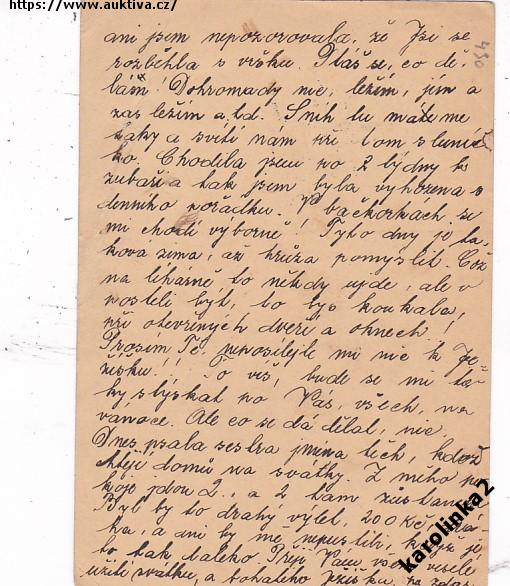 https://www.auktiva.cz/
ani jsem nepozorovala, že Jsi se
rozběhla s vršku. Ptáš se, co dě-
lám! Dohromady nic, ležím, jím a
zas ležím a.t.d. Sníh tu máme
taky a svítí nám při tom sluníč-
ko. Chodila jsem po 2 týdny k
zubaři a tak jsem byla vyhozena s
denního pořádku. V bačkorkách se
mi chodí výborně! Tyto dny je ta-
ková zima, až hrůza pomyslit. Což
na lihárně to někdy ujde, ale v
posteli být, to bys koukala,
při otevřených dveří a oknech!
Prosím Tě, neposílejte mi nic k Je-
žíšku!! To víš, bude se mi ta-
ky stýskat po Vás, všech, na
vánoce. Ale co se dá dělat, nic.
Dnes psala sestra jména těch, kdož
chtějí domů na svátky. Z mého po-
koje jdou 2, a 2 tam zůstanou
Byl by to drahý výlet, 200 Kč,
ka, a ani by mě nepustili, když je
to tak daleko. Přeji Vám, vesele
užili svátků, a bohatého Ježíška,
450
karolinka2